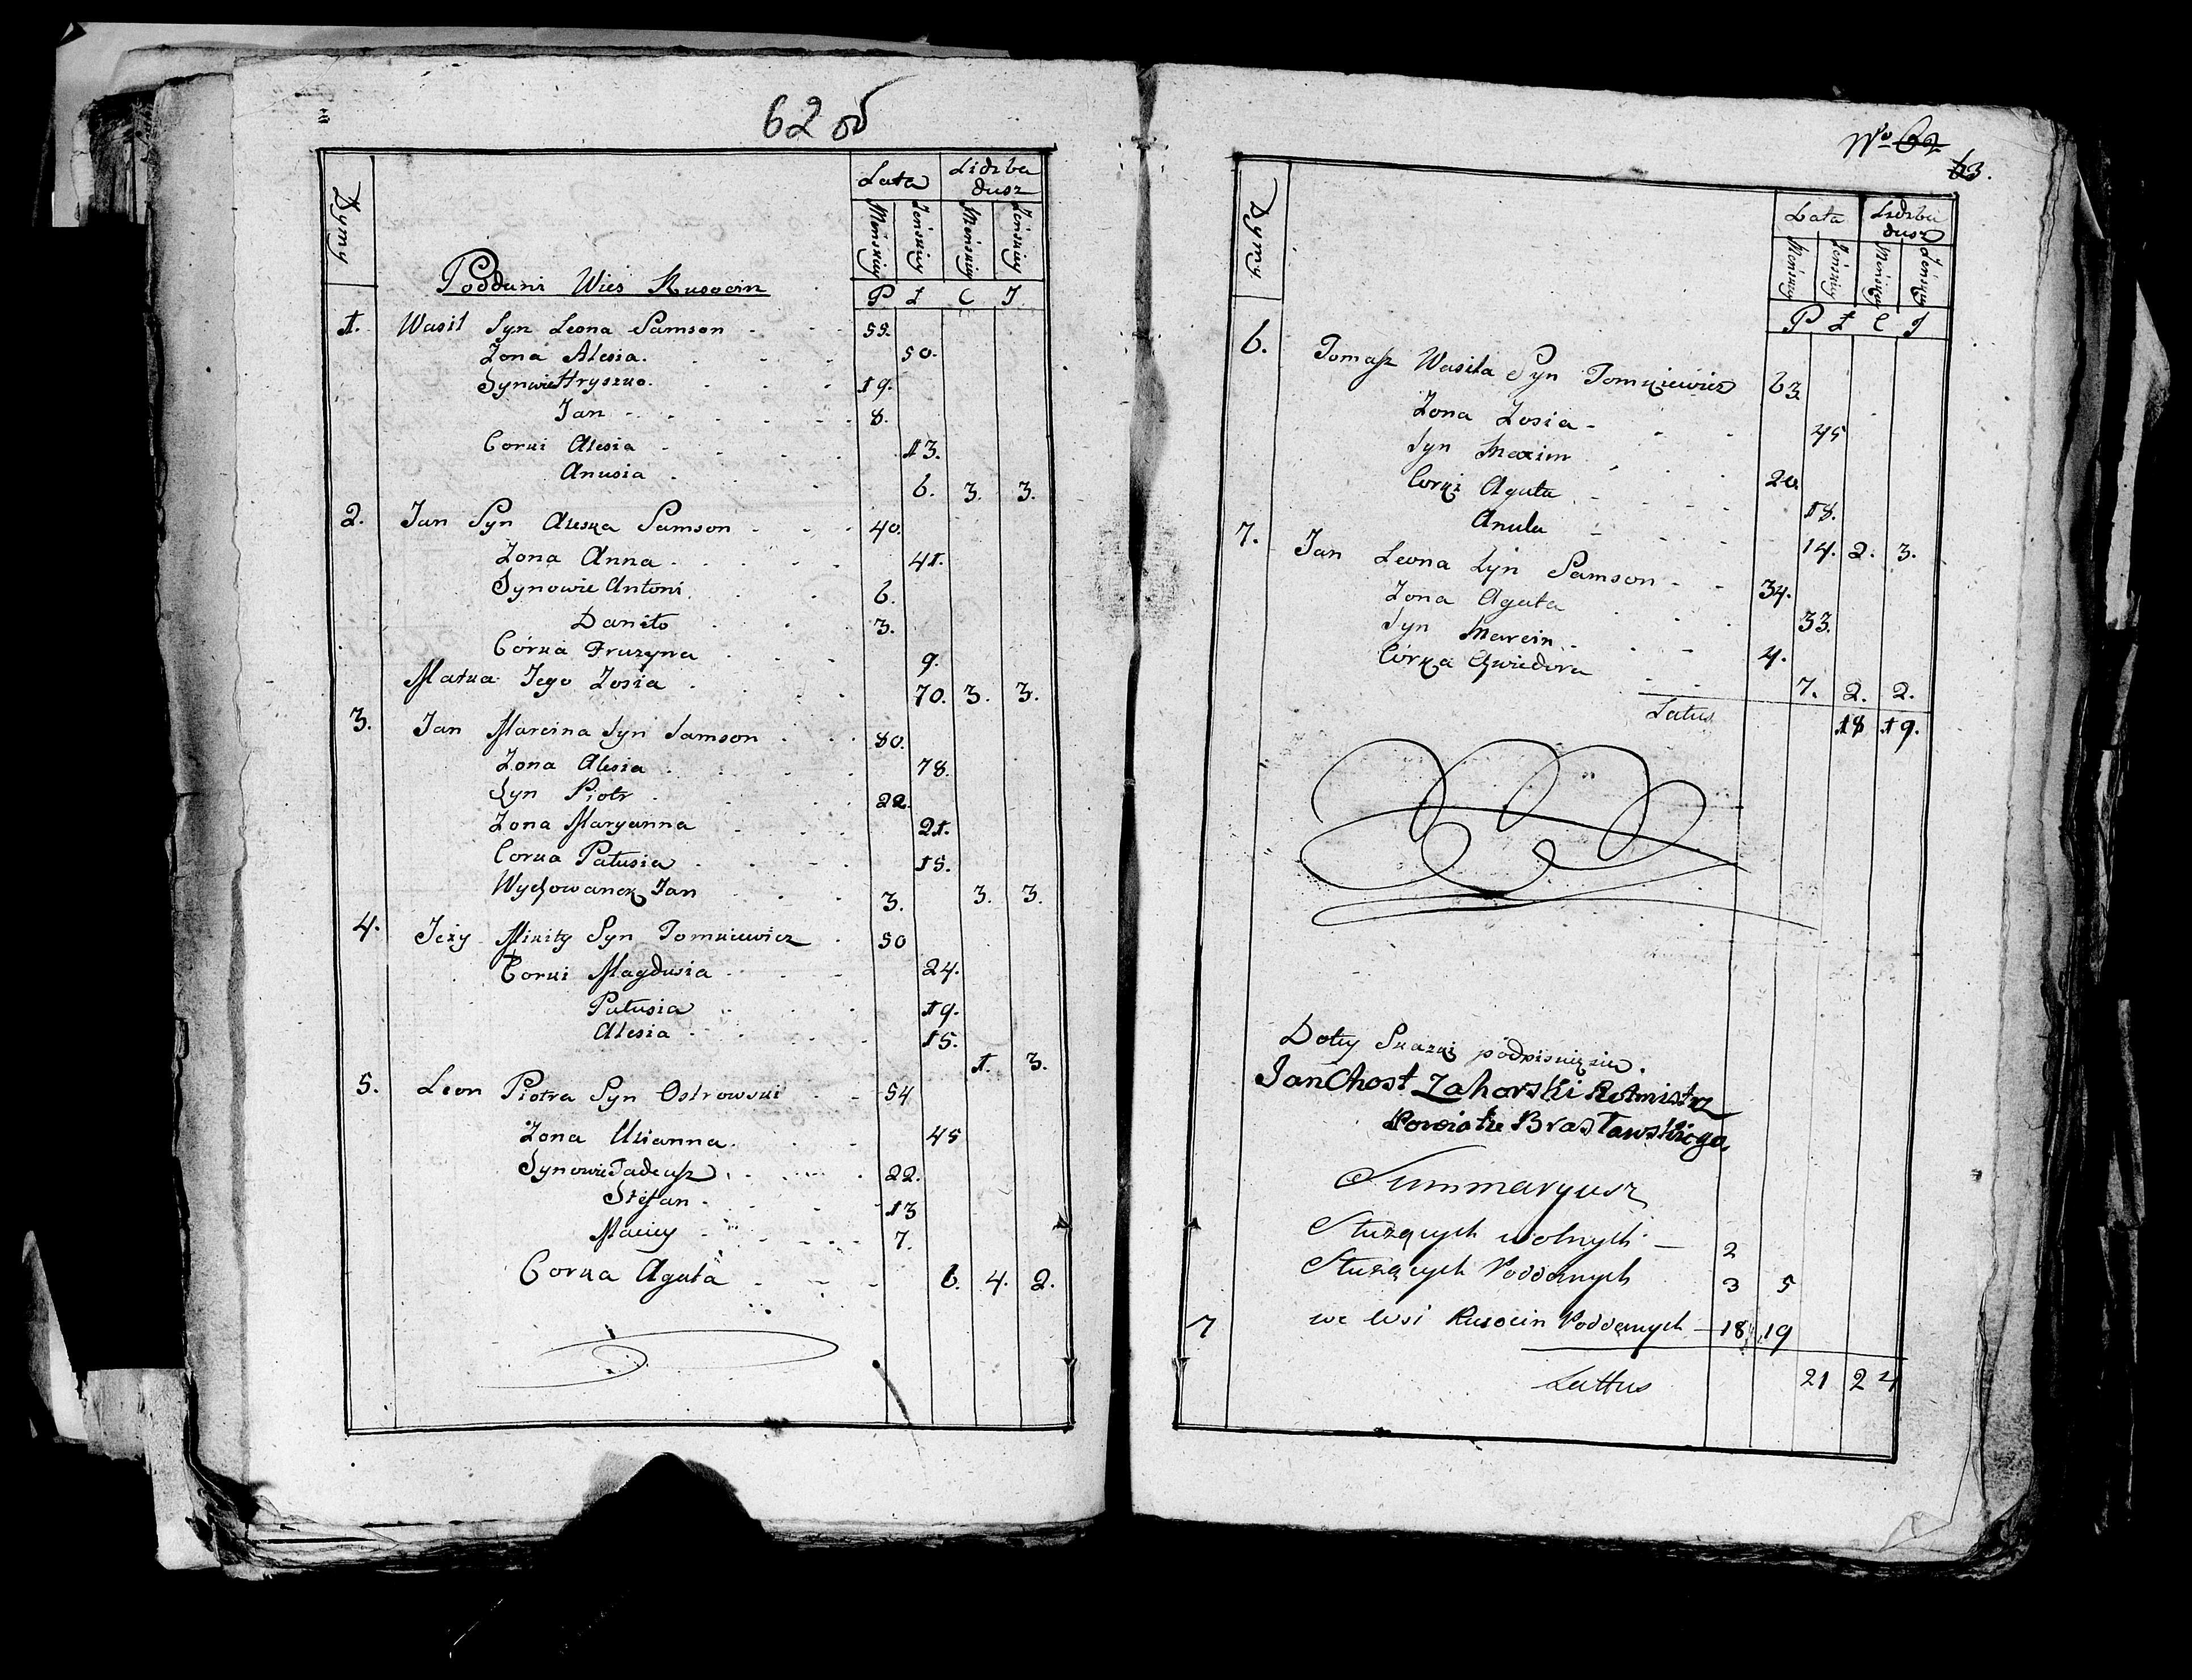 62 об
Dymy
Lata
Liczba dusz
Męskiey
Żeńskiey
Męskiey
Żeńskiey
Poddani Wieś Rusocin
P Ł C J
1. Wasil Syn Leona Samson 59.
Żona Alesia 50.
Synowie Hryszko 19.
Jan 8.
Corki Alesia 13.
Anusia 6. 3. 3.
2. Jan Syn Aleska Samson 40.
Żona Anna 41.
Synowie Antoni 6.
Daniło 3.
Córka Fruzyna 9.
Matka Jego Zosia 70. 3. 3.
3. Jan Marcina Syn Samson 80.
Żona Alesia 78.
Syn Piotr 22.
Żona Maryanna 21.
Corka Pałusia 15.
Wychowanek Jan 3. 3. 3.
4. Jeży Mikity Syn Tomkiewicz 50
Corki Magdusia 24.
Pałusia 19.
Alesia 15.
1. 3.
5. Leon Piotra Syn Ostrowski 54
Żona Ulianna 45
Synowie Tadeusz 22.
Stefan 13
Maciey 7.
Corka Agata 6. 4. 2.
No 62
63.
Dymy
Lata
Liczba dusz
Męskiey
Żeńskiey
Męskiey
Żeńskiey
P Ł C J
6. Tomasz Wasila Syn Tomkiewicz 63.
Żona Zosia 45
Syn Maxim 20.
Corki Agata 18.
Anula 14. 2. 3.
7. Jan Leona Syn Samson 34.
Żona Agata 33.
Syn Marcin 4.
Córka Chwiedora 7. 2. 2.
Latus 18 19.
Do tey Skazki podpisuię się.
Jan Chost Zahorski Rotmistrz
Powiatu Brasławskiego
Summaryusz
Służących wolnych 2
Służących Poddanych 3 5
7 we Wsi Rusocin Poddanych 18 19
Lattus 21 24